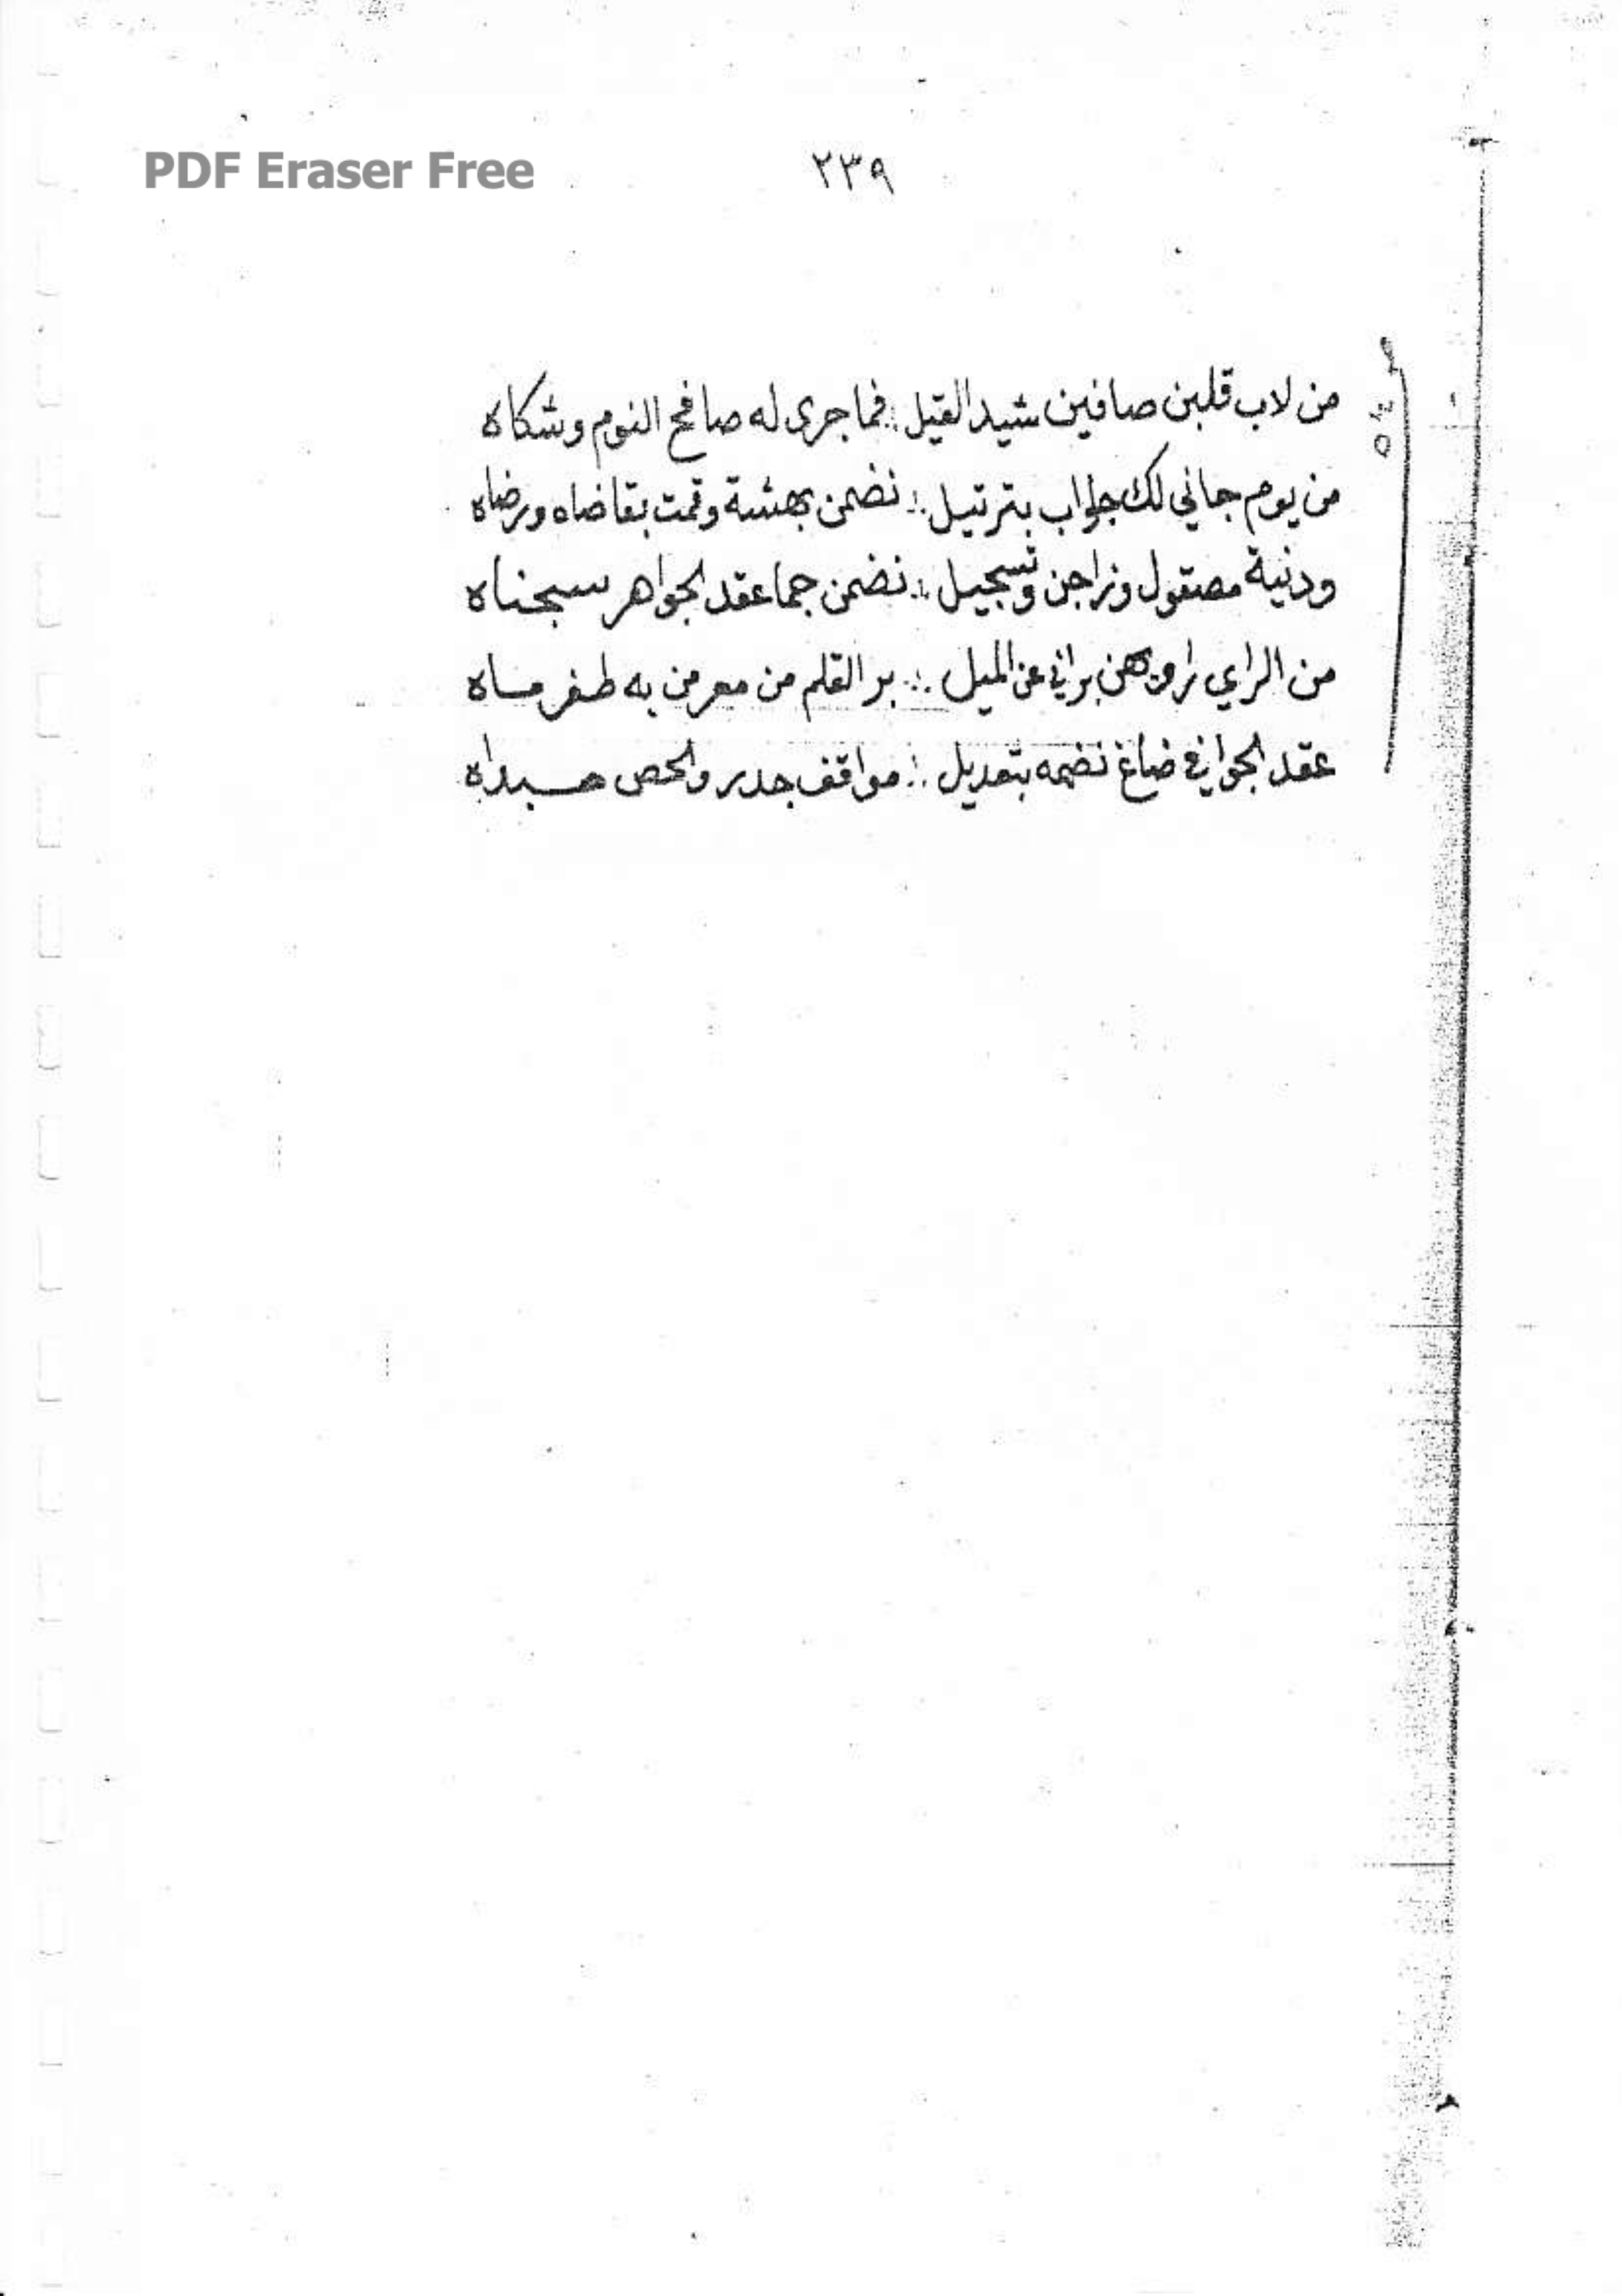 PDF Eraser Free
٢٣٩
من لاب قلبن صافين شيد القيل ∴ فما جرى له صافح النوم وشكاه
من يوم جاني لك جواب بترتيل ∴ نضمن بهشة وقمت بقاضاه ورضاه
ودنية مصقول وزاجن وتسجيل ∴ نضمن جما عقد الجواهر سجناه
من الراي براني عن الميل ∴ بر القلم من معرمن به طفر مساه
عقد الجوا في ضاغ نضمه بتعديل ∴ مواقف جدر والحص